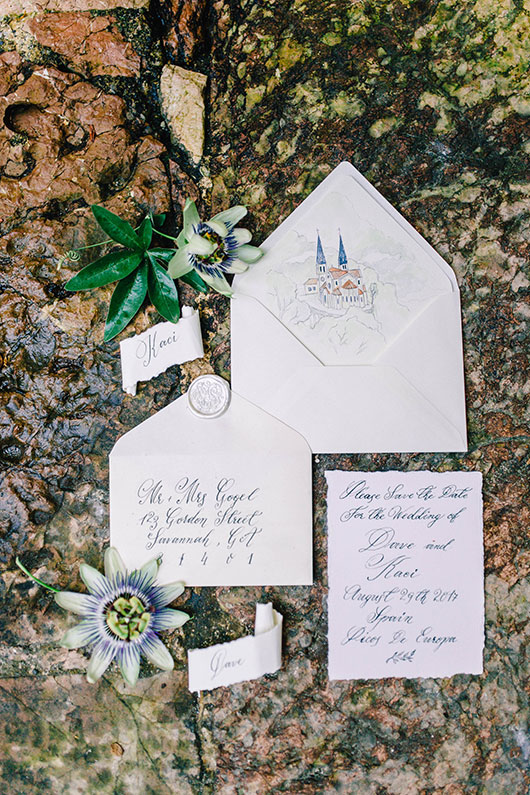 Kaci
Mr & Mrs Gogel
123 Gordon Street
Savannah, GA
31401
Please Save the Date
For the Wedding of
Dave and
Kaci
August 29th 2017
Spain
Picos De Europa
Dave